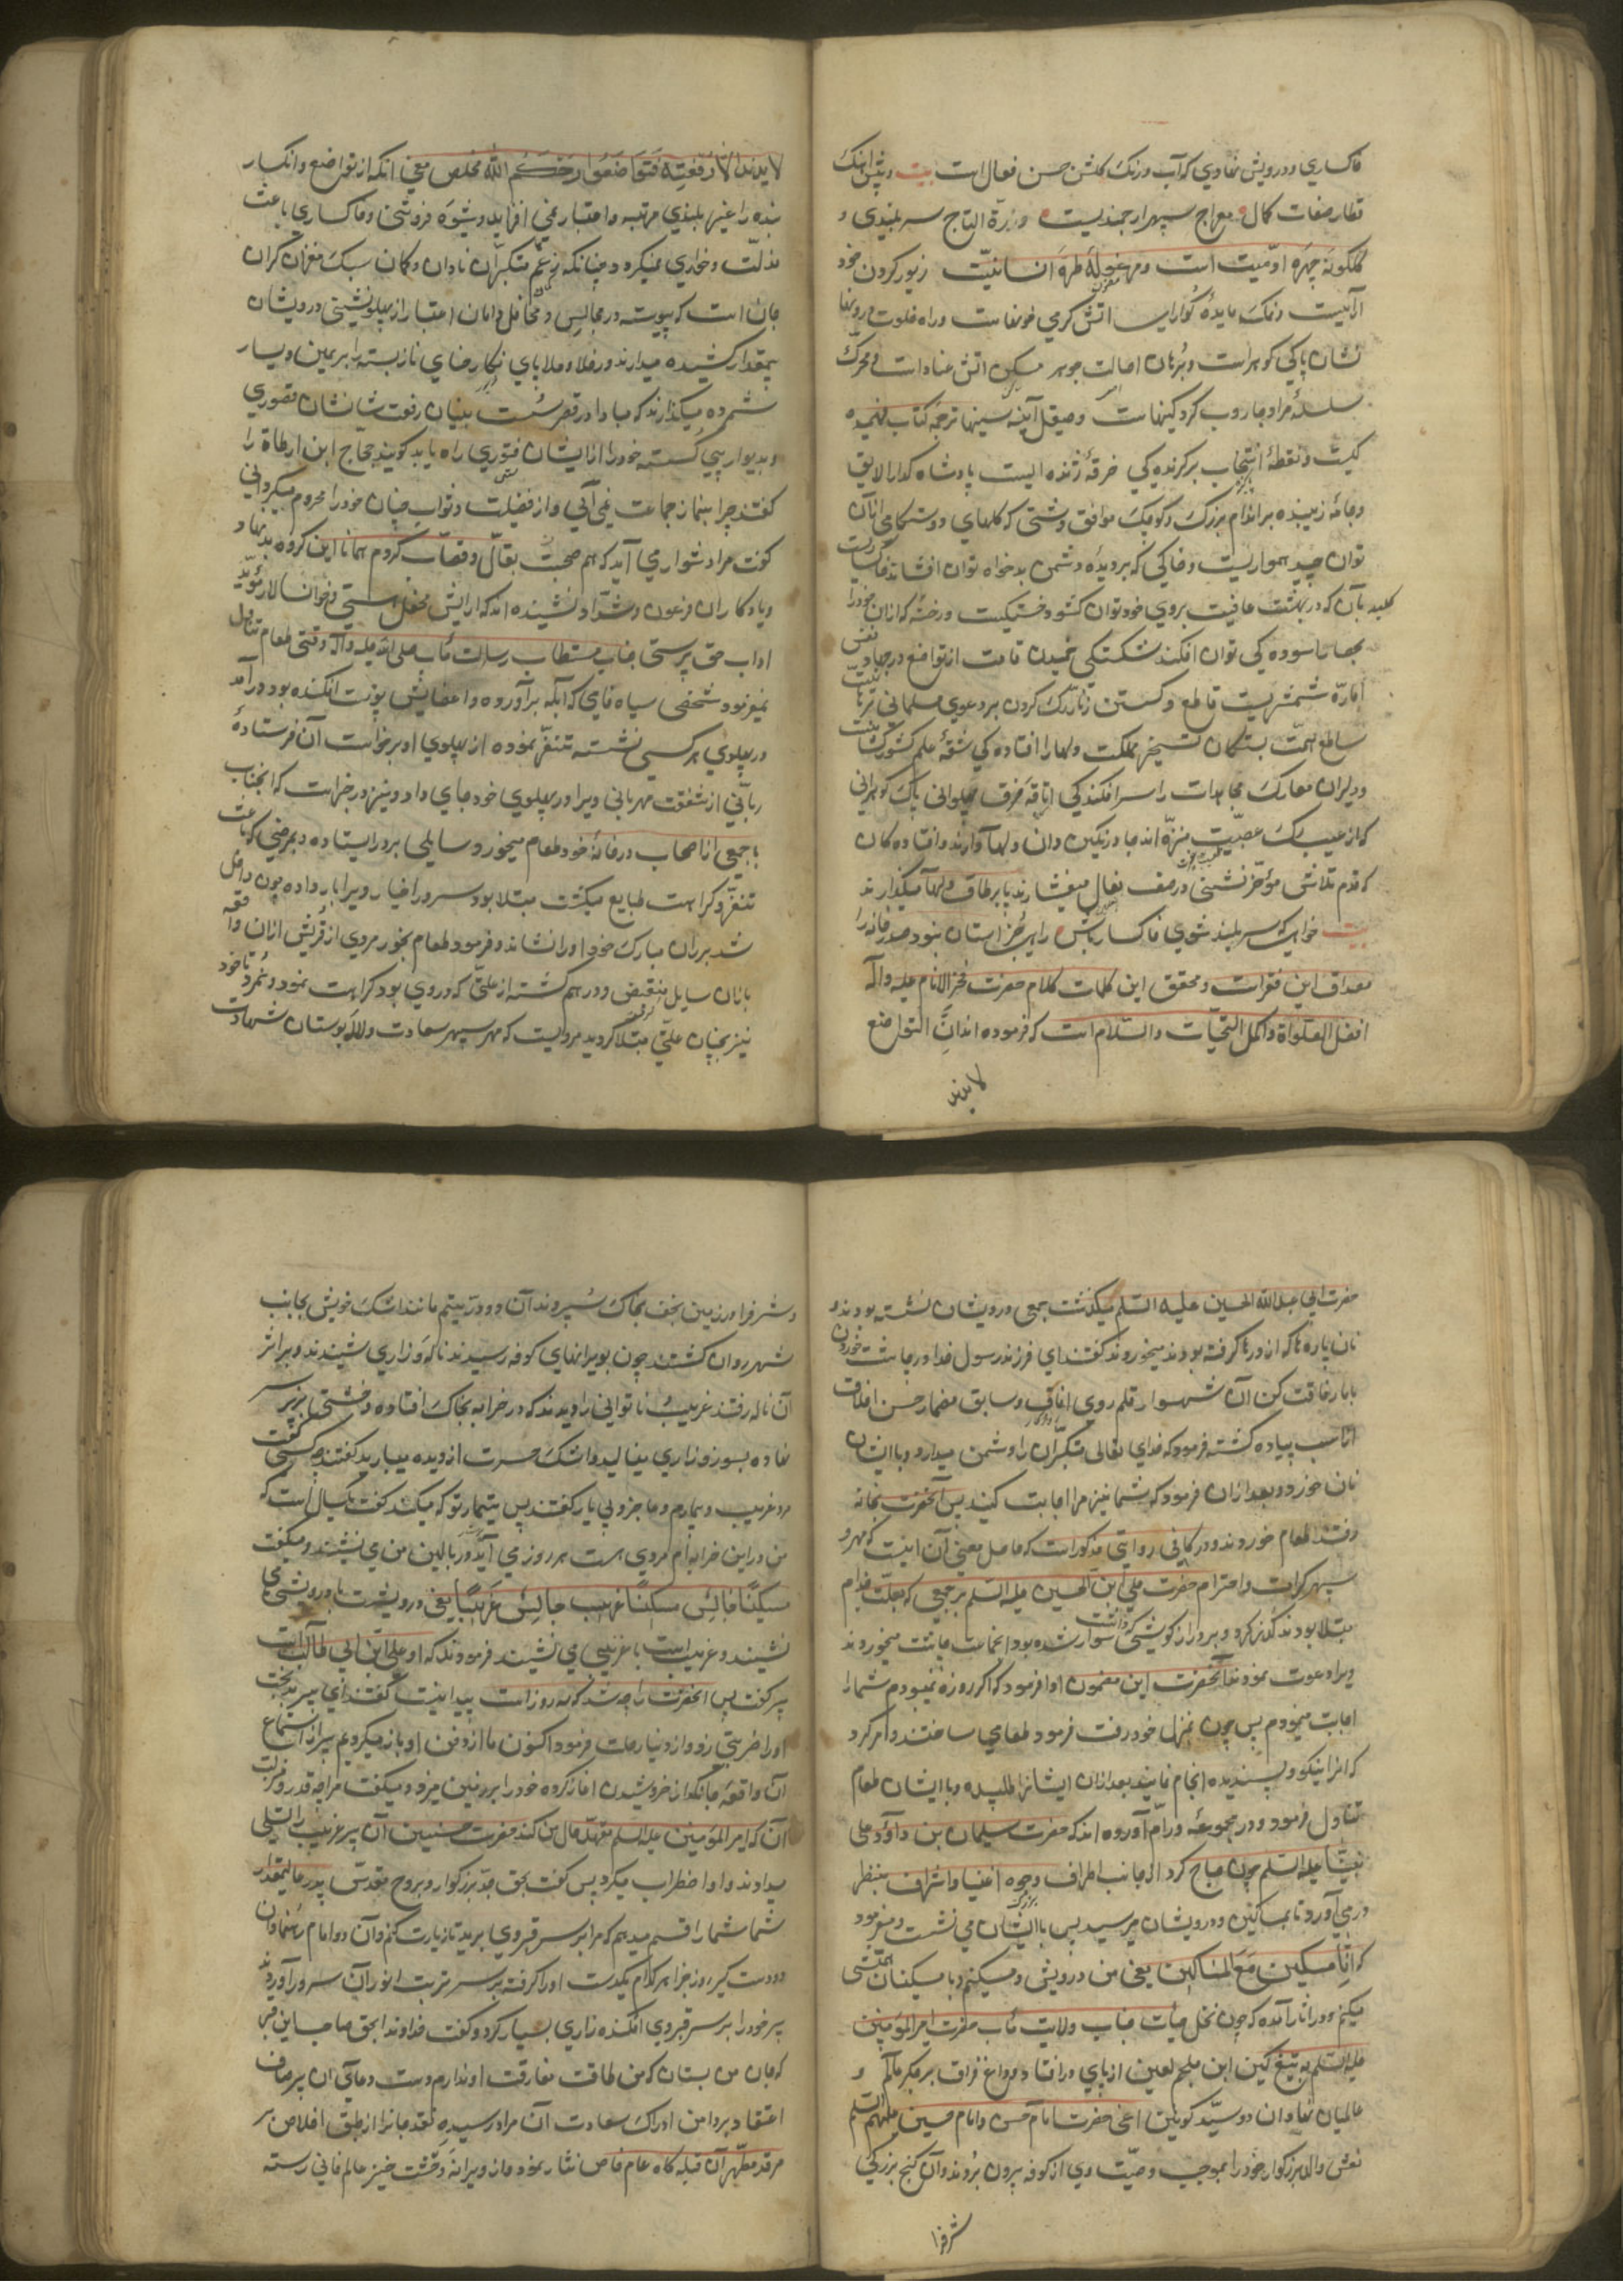 خاکساری و درویش نهادی که آب و رنک کلشن حسن فعال است بیت
قطار صفات کمال معراج سپهر ارجمندیست و درة التاج سر بلندی و
کلکونه چهره آدمیت است و طره انسانیت زیور کردن خود
نشان پاکی کوهر است و برهان اصالت جوهر مسکن اتش عناد است و محرک
سلسله مراد جاروب کرد کینهاست و صیقل آینه سینها ترجمه کتاب فهمیده
کیست و نقطه انتخاب برکزیده کی خرقه ژنده ایست پادشاه کدا را لایق
و جامه زیبنده بر اندام بزرک و کوچک موافق و دشتی که کلهای دوستکامی ازان
توان چید همواریست و خاکی که بر دیده دشمن بدخواه توان افشاند
کلید بآن که در بهشت عافیت بروی خود توان کشود و رخشه که ازان خود را
بجهان آسوده کی توان افکند شکستکی خمیدن قامت از تواضع در جهاد نفس
اماره شمشیریست قاطع و کسستن زنار رک کردن بر دعوی مسلمانی
ساطع همت بستکان تسخیر مملکت دلها را افتاده کی شقه علم کشورکشا
و دلیران معارک مجاهدات را سرافکندکی پهلوانی پاک کوهرانی
که از عیب رک عصبیت منزه اند جا در نکین دان دلها دارند و افتاده کان
که قدم تلاش مؤخر نشینی در صف نعال میفشارند پا بر طاق دلها میکذارند
بیت خواهی که سر بلند شوی خاکسار باش
مصداق این فقرات و محقق این کلمات کلام حضرت فخر الانام علیه و آله
افضل الصلواة و اکمل التحیات و السلام است که فرموده اند ان التواضع
لا یزید
لا یزید الا رفعته فتواضعوا رحمکم الله مخلص معنی انکه از تواضع و انکسار
بنده را غیر بلندی مرتبه و اعتبار نمی افزاید و شیوه فروتنی و خاکساری باعث
مذلت و خواری نمیکردد چنانکه زعم متکبران نادان و کمان سبک مغزان کران
جان است که پیوسته در مجالس و محافل دامان اعتبار از پهلو نشینی درویشان
بیمقدار کشیده میدارند و در خلا و ملا پای
شمرده میکذارند که مبادا در قصر سست بنیان رفعت شانشان قصوری
و بدیوار پی کسسته خود را از ایشان فتوری راه یابد کویند حجاج ابن ارطاة را
کفتند چرا بنماز جماعت نمی آیی و از فضیلت و ثواب چنان خود را محروم میکردانی
کفت مرا دشوار می آید که هم صحبت بقال و قصاب کردم همانا این کروه
و یادکاران فرعون و شداد نشنیده اند که آرایش محفل هستی و خوان سالار
اداب حق پرستی جناب مستطاب رسالت مآب صلی الله علیه و آله وقتی طعام تناول
میفرمود شخصی سیاه فامی که آبله برآورده و اعضایش پوست افکنده بود درآمد
در پهلوی هر کسی نشسته تنفر نموده از پهلوی او برخواست آن فرستاده
ربانی از شفقت مهربانی ویرا در پهلوی خود جای داد و نیز در خبر است که انجناب
با جمعی از اصحاب در خانه خود طعام میخورد سایلی بر در ایستاده و بمرضی که باعث
تنفر و کراهت طبایع میکشت مبتلا بود سرور اخیار ویرا بار داده چون داخل
شد بر ران مبارک خود او را نشاند و فرمود طعام بخور مردی از قریش ازان واقعه
بازان سایل منقبض و درهم کشته از علتی که در وی بود کراهت نمود و نمرد تا خود
نیز بچنان علتی مبتلا کردید مرویست که مهر سپهر سعادت و لاله بوستان شهادت
حضرت ابی عبدالله الحسین علیه السلم میکذشت بجمعی درویشان نشسته بودند و
نان پاره ها که از درها کرفته بودند میخوردند کفتند ای فرزند رسول خدا در چاشت خوردن
با ما رفاقت کن آن شهسوار قلم روی آفاق و سابق مضمار حسن اخلاق
از اسب پیاده کشته فرمود که خدای تعالی متکبران را دشمن میدارد و با ایشان
نان خورد و بعد ازان فرمود که شما نیز مرا اجابت کنید پس آنحضرت بخانه
رفتند طعام خوردند و در کافی روایتی مذکور است که حاصل معنی آن اینست که مهر و
سپهر کرامت و احترام حضرت علی ابن الحسین علیه السلم بر جمعی که بعلت جذام
مبتلا بودند کذر کرد و بر دراز کوشی سوار شده بود انجماعت چاشت میخوردند
ویرا دعوت نمودند آنحضرت این مضمون ادا فرمود که اکر روزه نمیبودم شما را
اجابت مینمودم پس چون بمنزل خود رفت فرمود طعامی ساختند و امر کرد
که انرا نیکو و پسندیده انجام نمایند بعد ازان ایشانرا طلبیده و با ایشان طعام
تناول فرمود و در مجموعه ورام آورده اند که حضرت سلیمان بن داود علی
نبینا علیه السلم چون صباح کردی از جانب اطراف وجوه اغنیا و اشراف بنظر
در می آورد تا بمساکین و درویشان میرسید پس با ایشان می نشست و میفرمود
که انا مسکین مع المساکین یعنی من درویش و مسکینم و با مسکینان همنشینی
میکنم و در اثار آمده که چون نخل حیات جناب ولایت مآب حضرت امیر المؤمنین
علیه السلم به تیغ کین ابن ملجم لعین از پای در افتاد و داغ فراق بر جکر عالم و
عالمیان نهاد آن دو سید کونین اعنی حضرت امام حسن و امام حسین علیهم السلم
نعش والد بزرکوار خود را بموجب وصیت وی از کوفه بیرون بردند و آن کنج بزرکی
شرفرا
و شرفرا در زمین نجف بخاک سپردند آن دو در یتیم مانند اشک خویش بجانب
شهر روان کشتند چون بویرانهای کوفه رسیدند ناله و زاری شنیدند و بر اثر
آن ناله رفتند غریب ناتوانی را دیدند که در خرابه بخاک افتاده و خشتی بزیر سر
نهاده بسوز و زاری مینالید و اشک حسرت از دیده میبارید کفتند چه کسی کفت
مرد غریب و بیمارم و عاجز و بی یار کفتند پس تیمار تو که میکند کفت یکسال است که
من در این خرابه ام مردی هست هر روز می آید و بر بالین من می نشیند و میکفت
مسکینا جالس مسکینا غریب جالس غریبا یعنی درویشست با درویشی می
نشیند و غریب است با غریبی می نشیند فرمودند که او علی ابن ابی طالب است
پیر کفت پس انحضرت را چه شد که سه روز است پیدا نیست کفتند ای پیر بدبخت
او را ضربتی زد و از دنیا رحلت فرمود اکنون ما از دفن او باز میکردیم پیر از استماع
آن واقعه جانکداز خروشیدن اغاز کرده خود را بر زمین میزد و میکفت مرا چه قدر و منزلت
آن که امیر المؤمنین علیه السلم تعهد حال من کند حضرت حسنین آن پیر غریب را تسلی
میدادند و او اضطراب میکرد پس کفت بحق جد بزرکوار و بروح مقدس پدر عالیمقدار
شما شما را قسم میدهم که مرا بر سر قبر وی برید تا زیارت کنم و آن دو امام رهنما و آن
دو دست کیر روز جزا هر کدام یکدست او را کرفته بر سر تربت انور آن سرور آوردند
پیر خود را بر سر قبر وی افکنده زاری بسیار کرد و کفت خداوندا بحق صاحب این قبر
که جان من بستان که من طاقت مفارقت او ندارم دست دعای آن پیر صاف
اعتقاد بر دامن ادراک سعادت آن مراد رسیده نقد جانرا از طبق اخلاص بر
مرقد مطهر آن قبله کاه عام خاص نثار نمود و از ویرانه وحشت خیز عالم فانی رسته